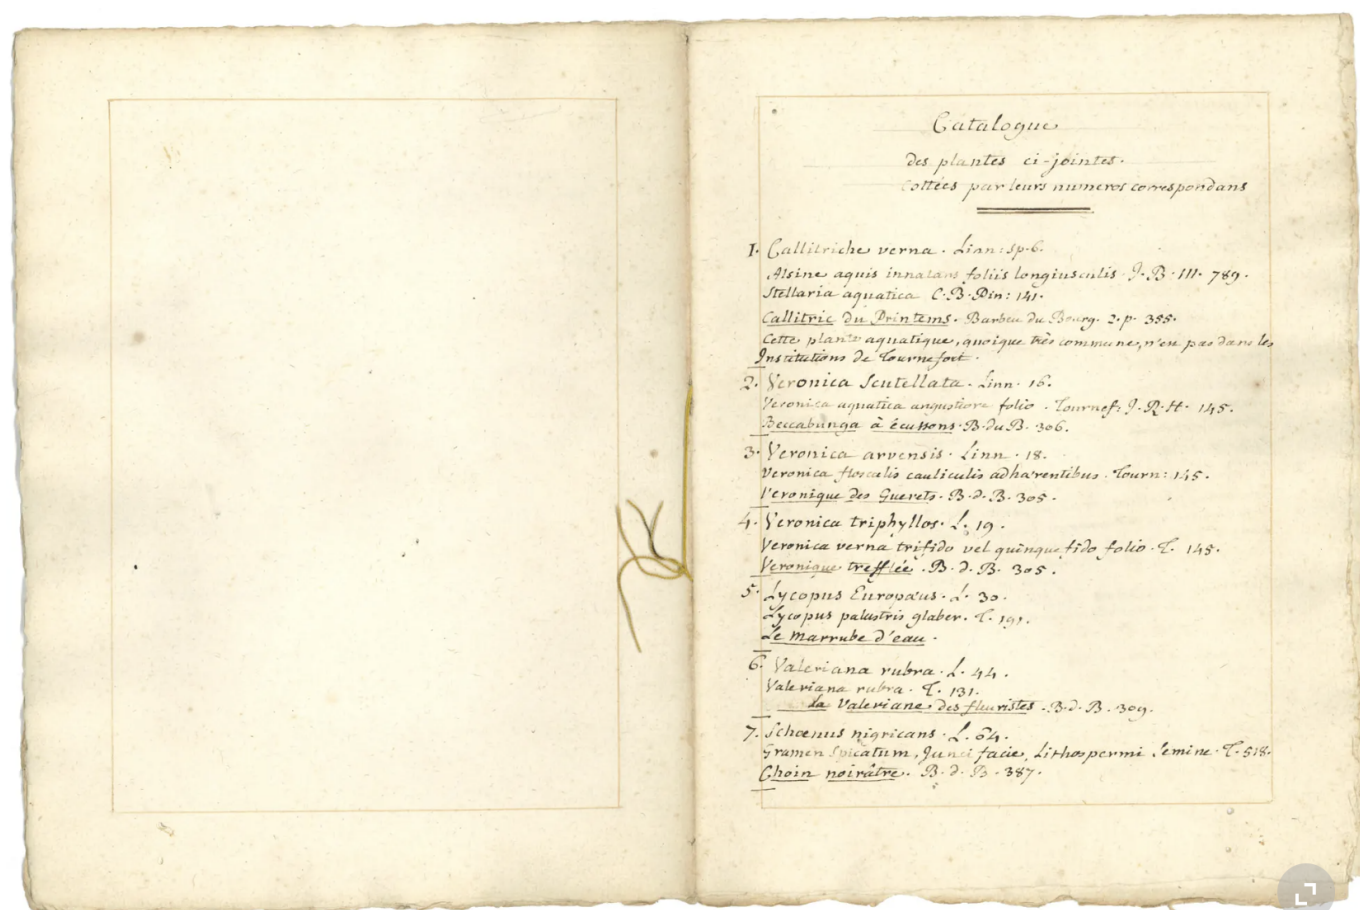 Catalogue
des plantes ci-jointes.
Cottées par leurs numeros correspondans
1. Callitriche verna. Linn: sp. 6.
Alsine aquis innatans foliis longiusculis. J. B. III. 789.
Stellaria aquatica C. B. Pin: 141.
Callitric du Printems. Barbeu du Bourg. 2. p. 355.
Cette plante aquatique, quoique très commune, n'est pas dans les
Institutions de Tournefort.
2. Veronica Scutellata. Linn. 16.
Veronica aquatica angustiore folio. Tournef. J. R. H. 145.
Beccabunga à écussons. B. du B. 306.
3. Veronica arvensis. Linn. 18.
Veronica flosculis cauliculis adhærentibus. Tourn: 145.
Veronique des Guerets. B. d. B. 305.
4. Veronica triphyllos. L. 19.
Veronica verna trifido vel quinquefido folio. T. 145.
Veronique trefflée. B. d. B. 305.
5. Lycopus Europæus. L. 30.
Lycopus palustris glaber. T. 191.
Le marrube d'eau.
6. Valeriana rubra. L. 44.
Valeriana rubra. T. 131.
La Valeriane des fleuristes. B. d. B. 309.
7. Schœnus nigricans. L. 64.
Gramen Spicatum, Junci facie, Lithospermi Semine. T. 518.
Choin noirâtre. B. d. B. 387.